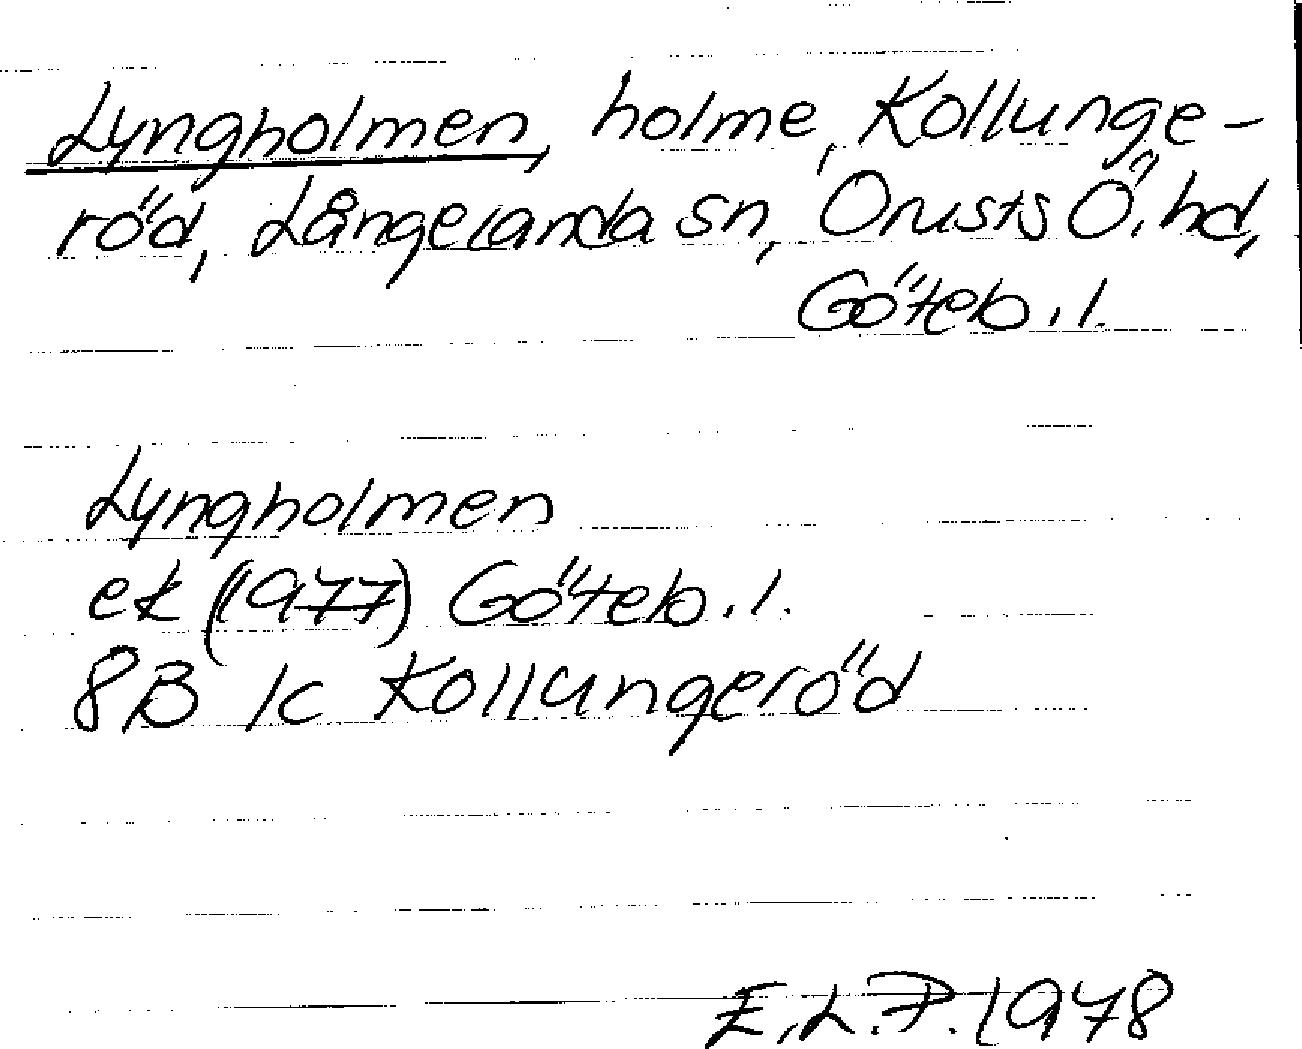 Lyngholmen, holme, Kollunge-
röd, Långelanda sn, Orusts Ö. hd,
Göteb. l.
Lyngholmen
ek (1977) Göteb. l.
8B 1c Kollungeröd
E.L.P. 1978